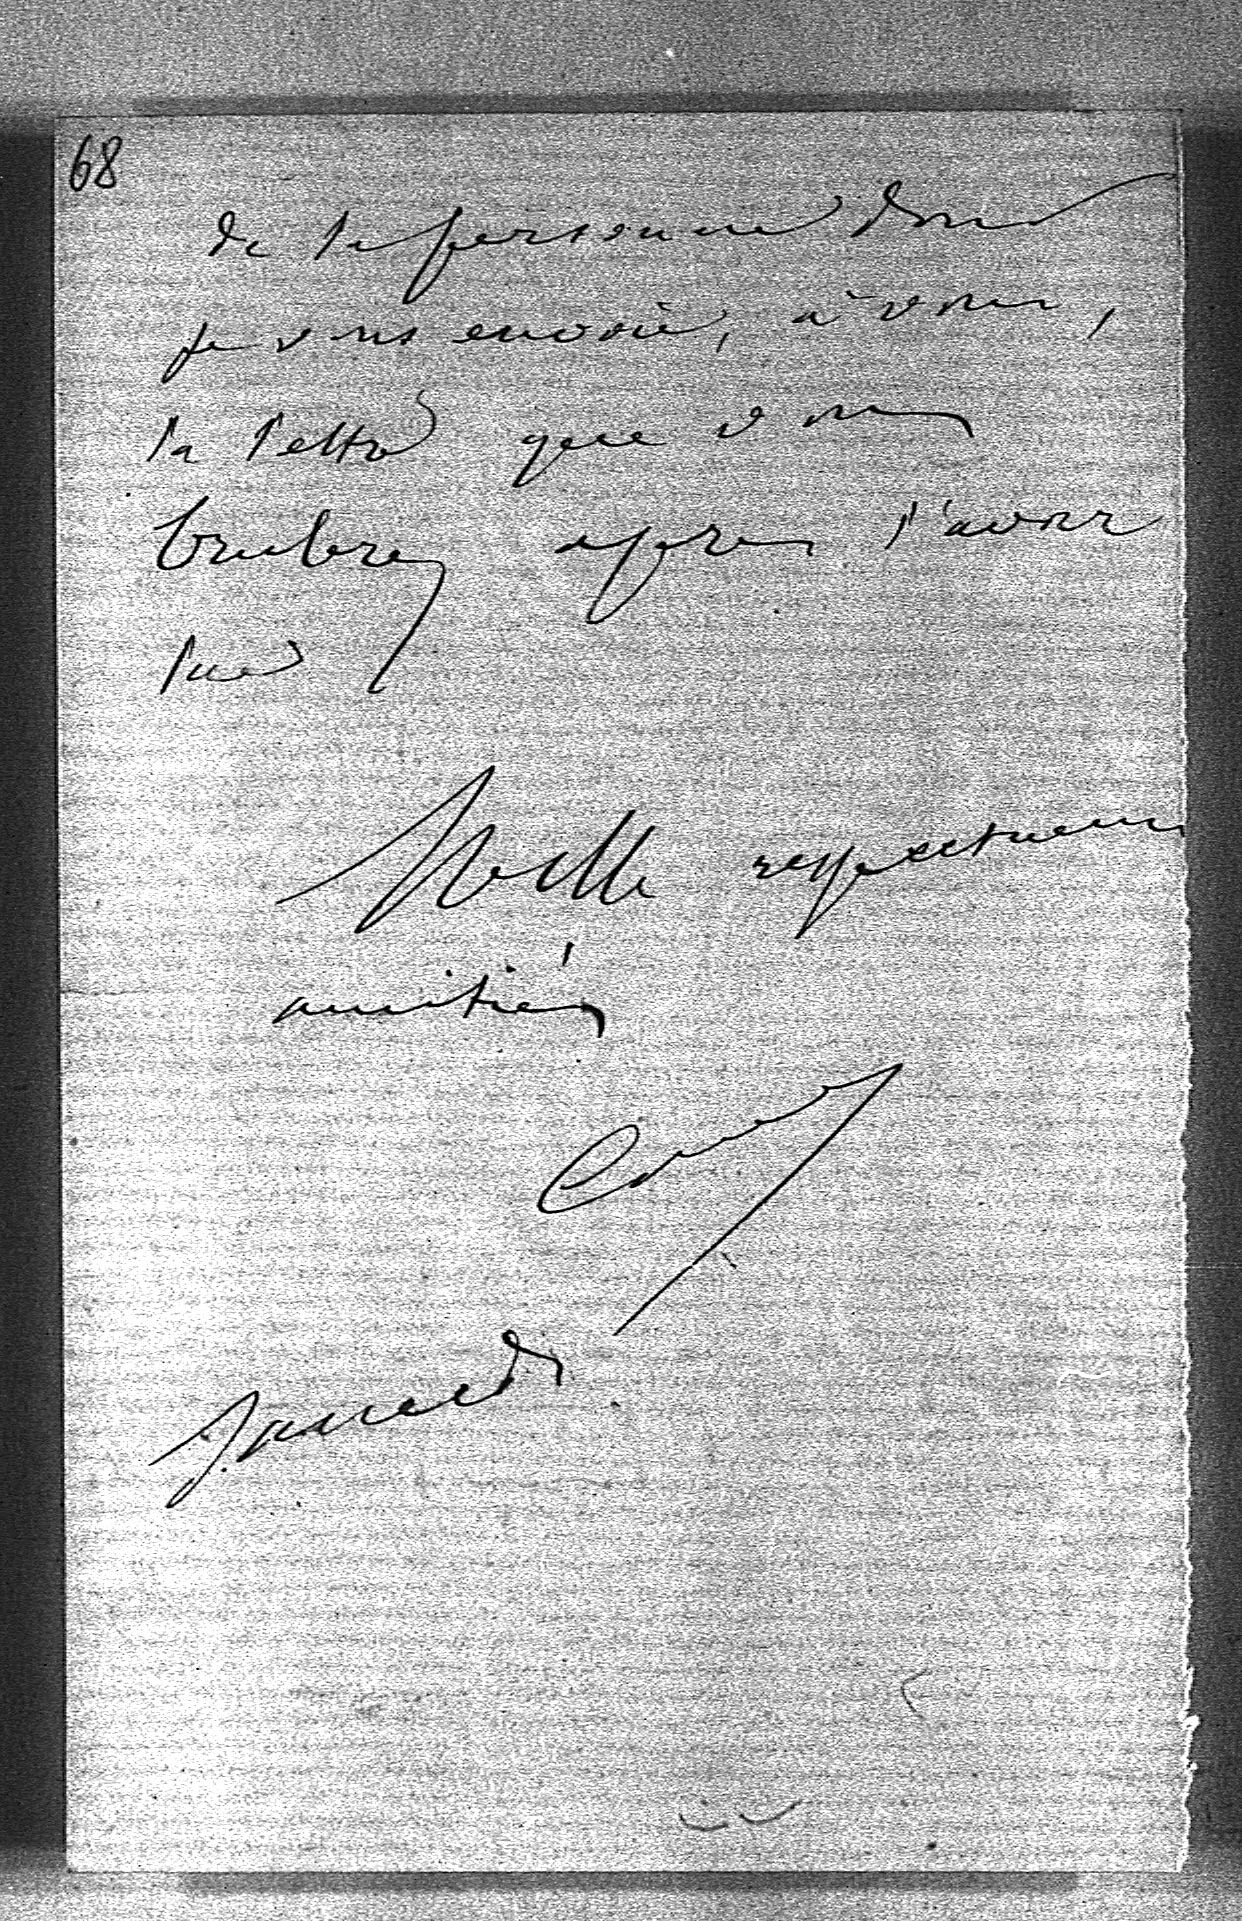 68
de la personne dont
je vous envoie, à vous,
la lettre que vous
brulerez apres l'avoir
lue
Mille respectueuses
amitiés
Samedi